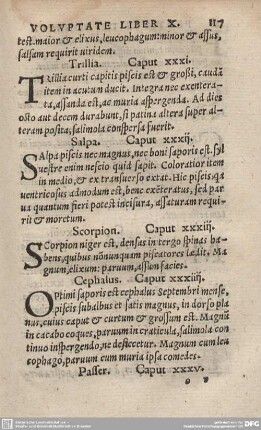 VOLVPTATE LIBER X. 117
test. maior & elixus, leucophagum: minor & assus,
salsam requirit viridem.
Trillia. Caput xxxi.
TRillia curti capitis piscis est & grossi, caudã
item in acutum ducit. Integra nec exentera-
ta, assanda est, ac muria aspergenda. Ad dies
octo aut decem durabunt, si patina altera super al-
teram posita, salimola conspersa fuerit.
Salpa. Caput xxxij.
SAlpa piscis nec magnus, nec boni saporis est. syl
uestre enim nescio quid sapit. Coloratior item
in medio, & ex transuerso extat. Hic piscis, qa
ventricosus admodum est, bene exẽteratus, sed par
ua quantum fieri potest incisura, assaturam requi-
rit & moretum.
Scorpion. Caput xxxiij.
SCorpion niger est, densas in tergo spinas ha-
bens, quibus nõnunquam piscatores lædit. Ma
gnum, elixum: paruum, assum facies.
Cephalus. Caput xxxiiij.
OPtimi saporis est cephalus Septembri mense,
piscis subalbus et satis magnus, in dorso pla
nus, cuius caput & curtum & grossum est. Magnũ
in cacabo coques, paruum in craticula, salimola con
tinuo inspergendo, ne desiccetur. Magnum cum leu
cophago, paruum cum muria ipsa comedes.
Passer. Caput xxxv.